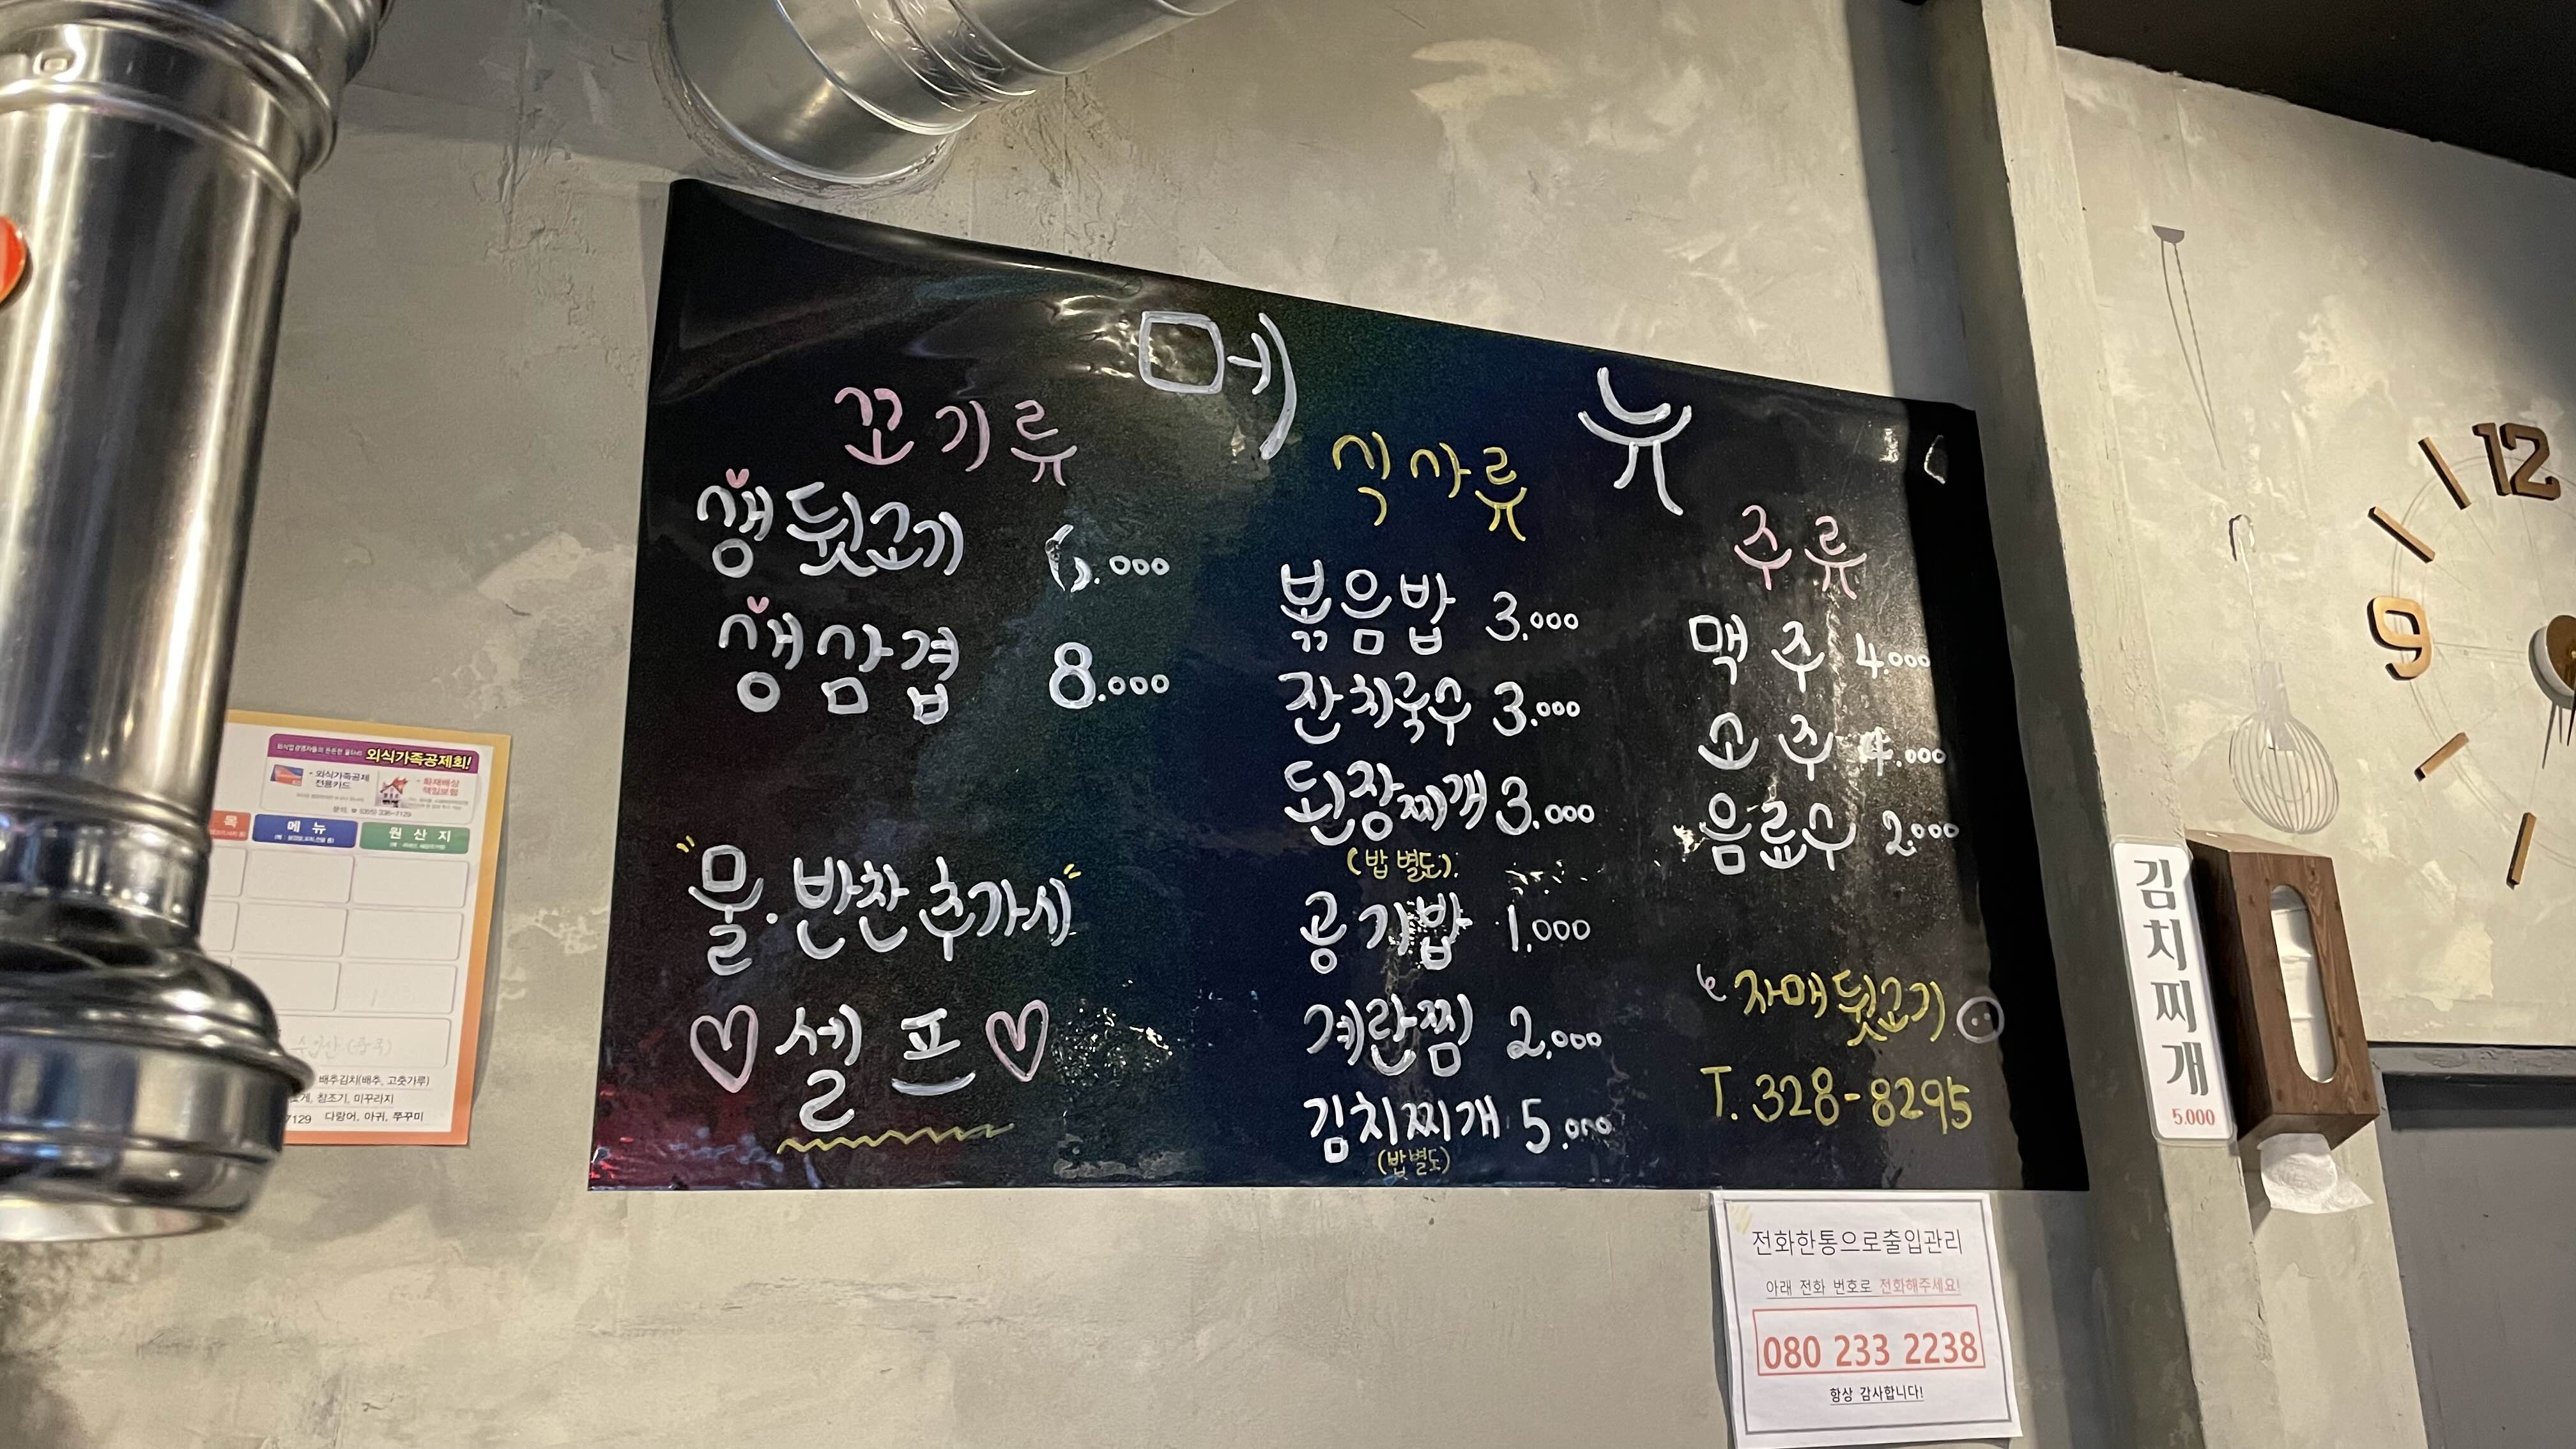 메뉴
꼬기류
생뒷고기 6.000
생삼겹 8.000
물.반찬 추가시
♡셀프♡
식사류
볶음밥 3.000
잔치국수 3.000
된장찌개 3.000
(밥 별도)
공기밥 1.000
계란찜 2.000
김치찌개 5.000
(밥별도)
주류
맥주 4.000
소주 4.000
음료수 2.000
자매뒷고기
T. 328-8295
외식가족공제회!
- 외식가족공제
전용카드
- 화재배상
책임보험
문의. ☎ (055) 336-7129
목
메뉴
원산지
수입산 (중국)
배추김치(배추, 고춧가루)
게, 참조기, 미꾸라지
7129 다랑어, 아귀, 쭈꾸미
12
9
김치찌개
5.000
전화한통으로출입관리
아래 전화 번호로 전화해주세요!
080 233 2238
항상 감사합니다!